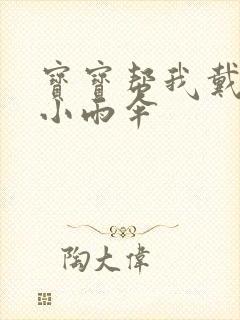 寶寶幫我戴
小雨傘
陶大偉